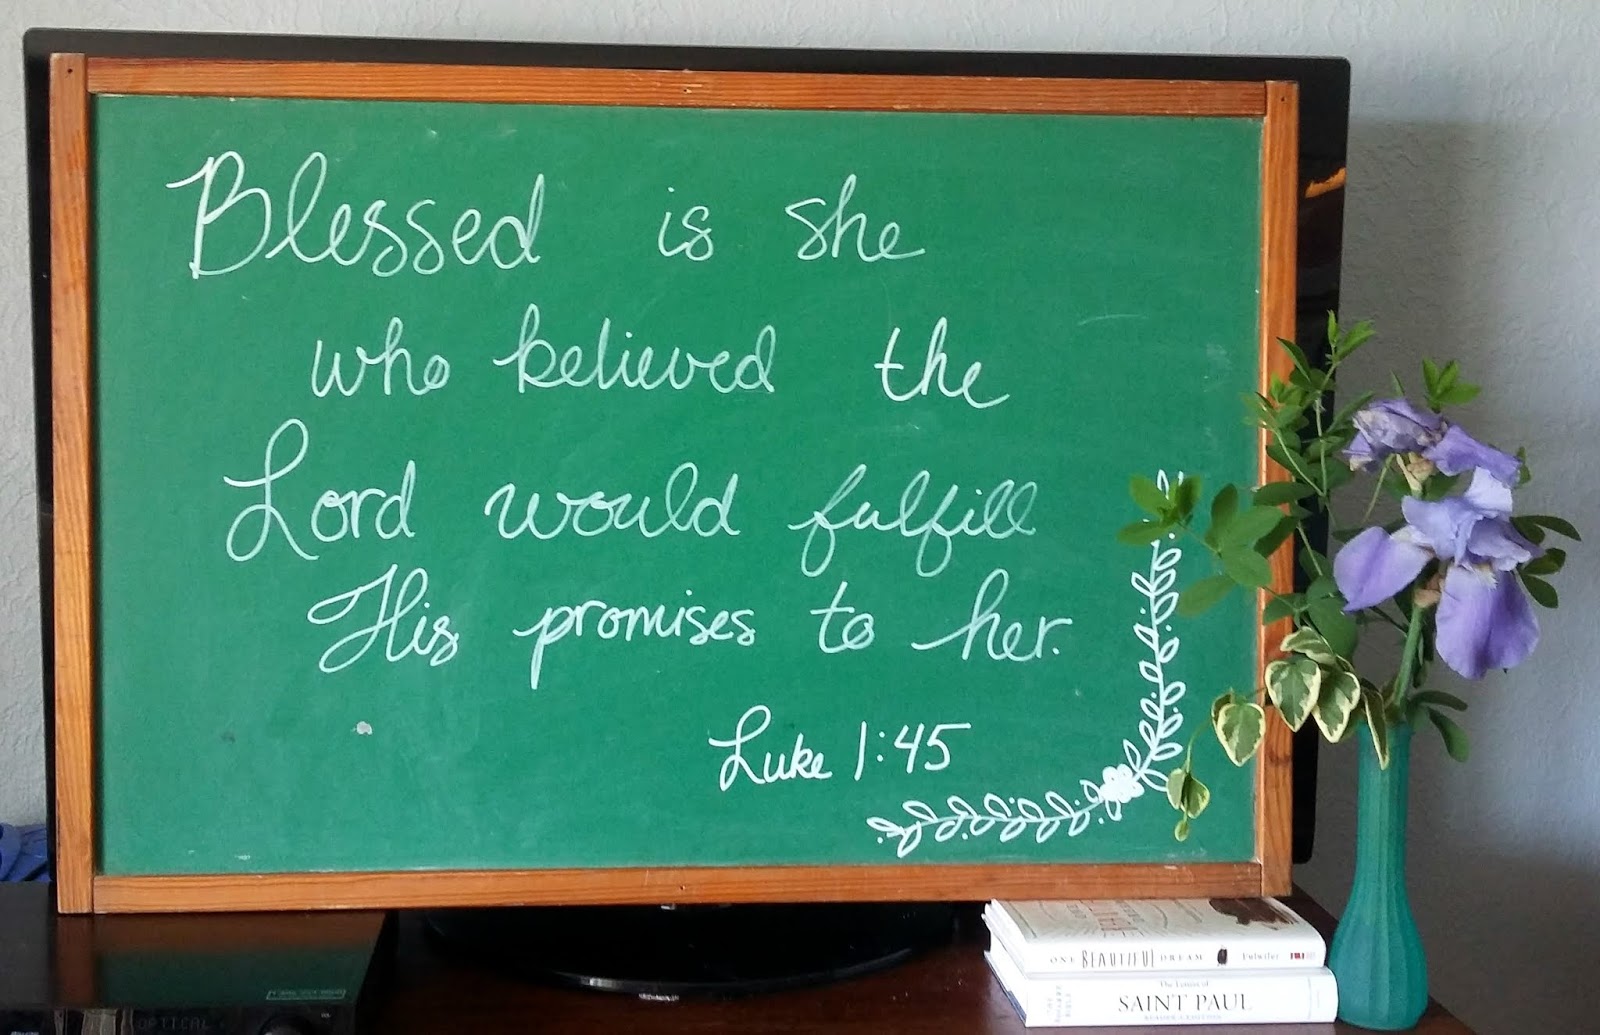 Blessed is she
who believed the
Lord would fulfill
His promises to her.
Luke 1:45
ONE BEAUTIFUL DREAM
The Letters of
SAINT PAUL
OPTICAL